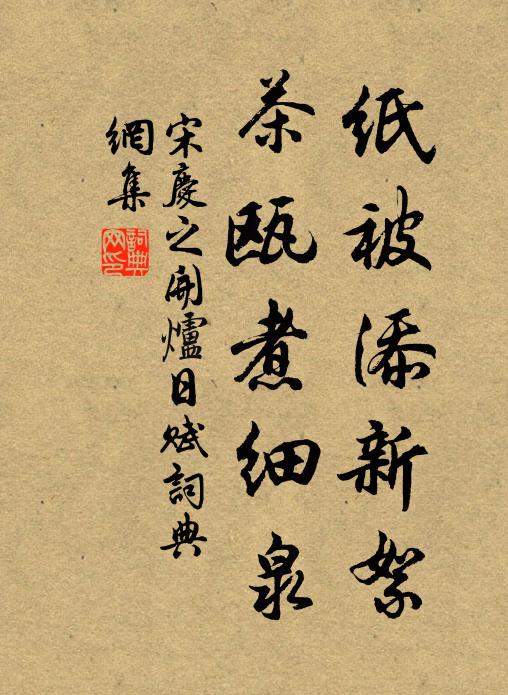 纸被添新絮
茶瓯煮细泉
宋慶之開爐日赋詞典
網集
詞典網印